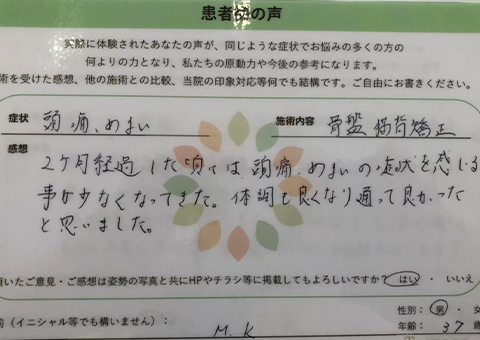 患者様の声
実際に体験されたあなたの声が、同じような症状でお悩みの多くの方の
何よりの力となり、私たちの原動力や今後の参考になります。
術を受けた感想、他の施術との比較、当院の印象対応等何でも結構です。ご自由にお書きください。
症状 頭痛、めまい 施術内容 骨盤 猫背矯正
感想
2ヶ月経過した頃には頭痛、めまいの症状を感じる
事が少なくなってきた。体調も良くなり通って良かった
と思いました。
頂いたご意見・ご感想は姿勢の写真と共にHPやチラシ等に掲載してもよろしいですか? はい ・ いいえ
性別: 男 ・ 女
前(イニシャル等でも構いません): M.K 年齢: 37 歳